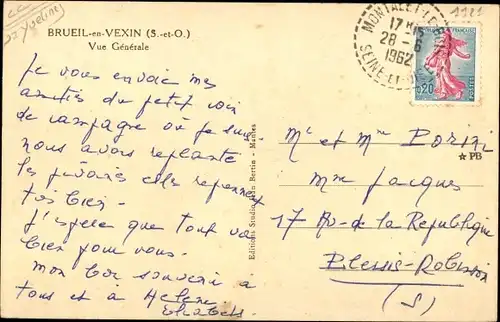 BRUEIL-en-VEXIN (S.-et-O.)
Vue Générale
Yvelines
17H15
28 - 6
1962
SEINE-ET-OISE
0,20
POSTES
Je vous envoie mes
amitiés du petit coin
de campagne où je suis
nous avons replanté
les pivoines elles reprennent
très bien.
J'espère que tout va
bien pour vous.
Mon bon souvenir à
tous et à Helene
Elisabeth
Editions Studio Jean Bertin - Mantes
★PB
Mr et Mme PORIN
Mme Jacques
17 Av. de la République
Plessis-Robinson
(S)